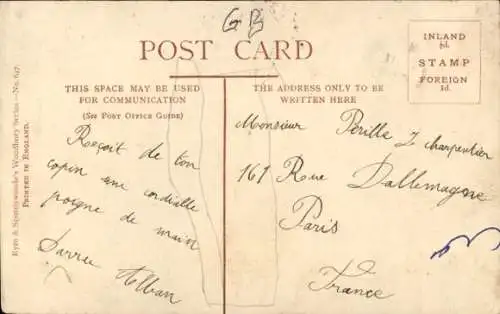 GB
POST CARD
THIS SPACE MAY BE USED
FOR COMMUNICATION
(See Post Office Guide)
THE ADDRESS ONLY TO BE
WRITTEN HERE
INLAND
½d.
STAMP
FOREIGN
1d.
Eyre & Spottiswoode's "Woodbury" Series.—No. 627.
PRINTED IN ENGLAND.
Reçoit de ton
copin une cordialle
poigne de main
Alban
Monsieur Perille charpentier
161 Rue Dallemagne
Paris
France